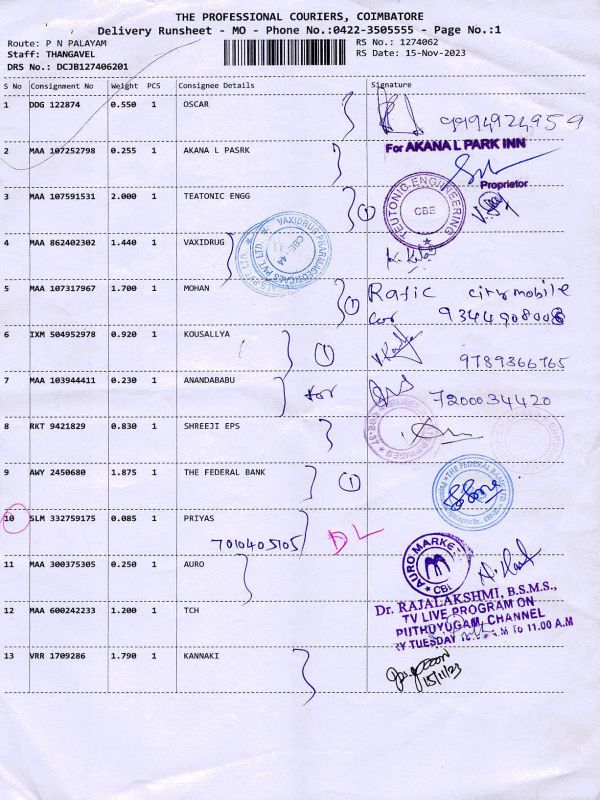 THE PROFESSIONAL COURIERS, COIMBATORE
Delivery Runsheet - MO - Phone No.:0422-3505555 - Page No.:1
Route: P N PALAYAM
Staff: THANGAVEL
DRS No.: DCJB127406201
RS No.: 1274062
RS Date: 15-Nov-2023
S No Consignment No Weight PCS Consignee Details Signature
1 DDG 122874 0.550 1 OSCAR
9994924959
2 MAA 107252798 0.255 1 AKANA L PASRK
For AKANA L PARK INN
Proprietor
3 MAA 107591531 2.000 1 TEATONIC ENGG 1
TEUTONIC ENGINEERING
CBE
4 MAA 862402302 1.440 1 VAXIDRUG
5 MAA 107317967 1.700 1 MOHAN 1 Rafic city mobile
9344908008
6 IXM 504952978 0.920 1 KOUSALLYA 1
9789366765
7 MAA 103944411 0.230 1 ANANDABABU for
7200034420
8 RKT 9421829 0.830 1 SHREEJI EPS
9 AWY 2450680 1.875 1 THE FEDERAL BANK 1
THE FEDERAL BANK LTD.
10 SLM 332759175 0.085 1 PRIYAS DL
7010405105
11 MAA 300375305 0.250 1 AURO
AURO MARKET
12 MAA 600242233 1.200 1 TCH
Dr. RAJALAKSHMI, B.S.M.S.,
TV LIVE PROGRAM ON
PUTHUYUGAM CHANNEL
RY TUESDAY TO 11.00 A.M
13 VRR 1709286 1.790 1 KANNAKI
15/11/23